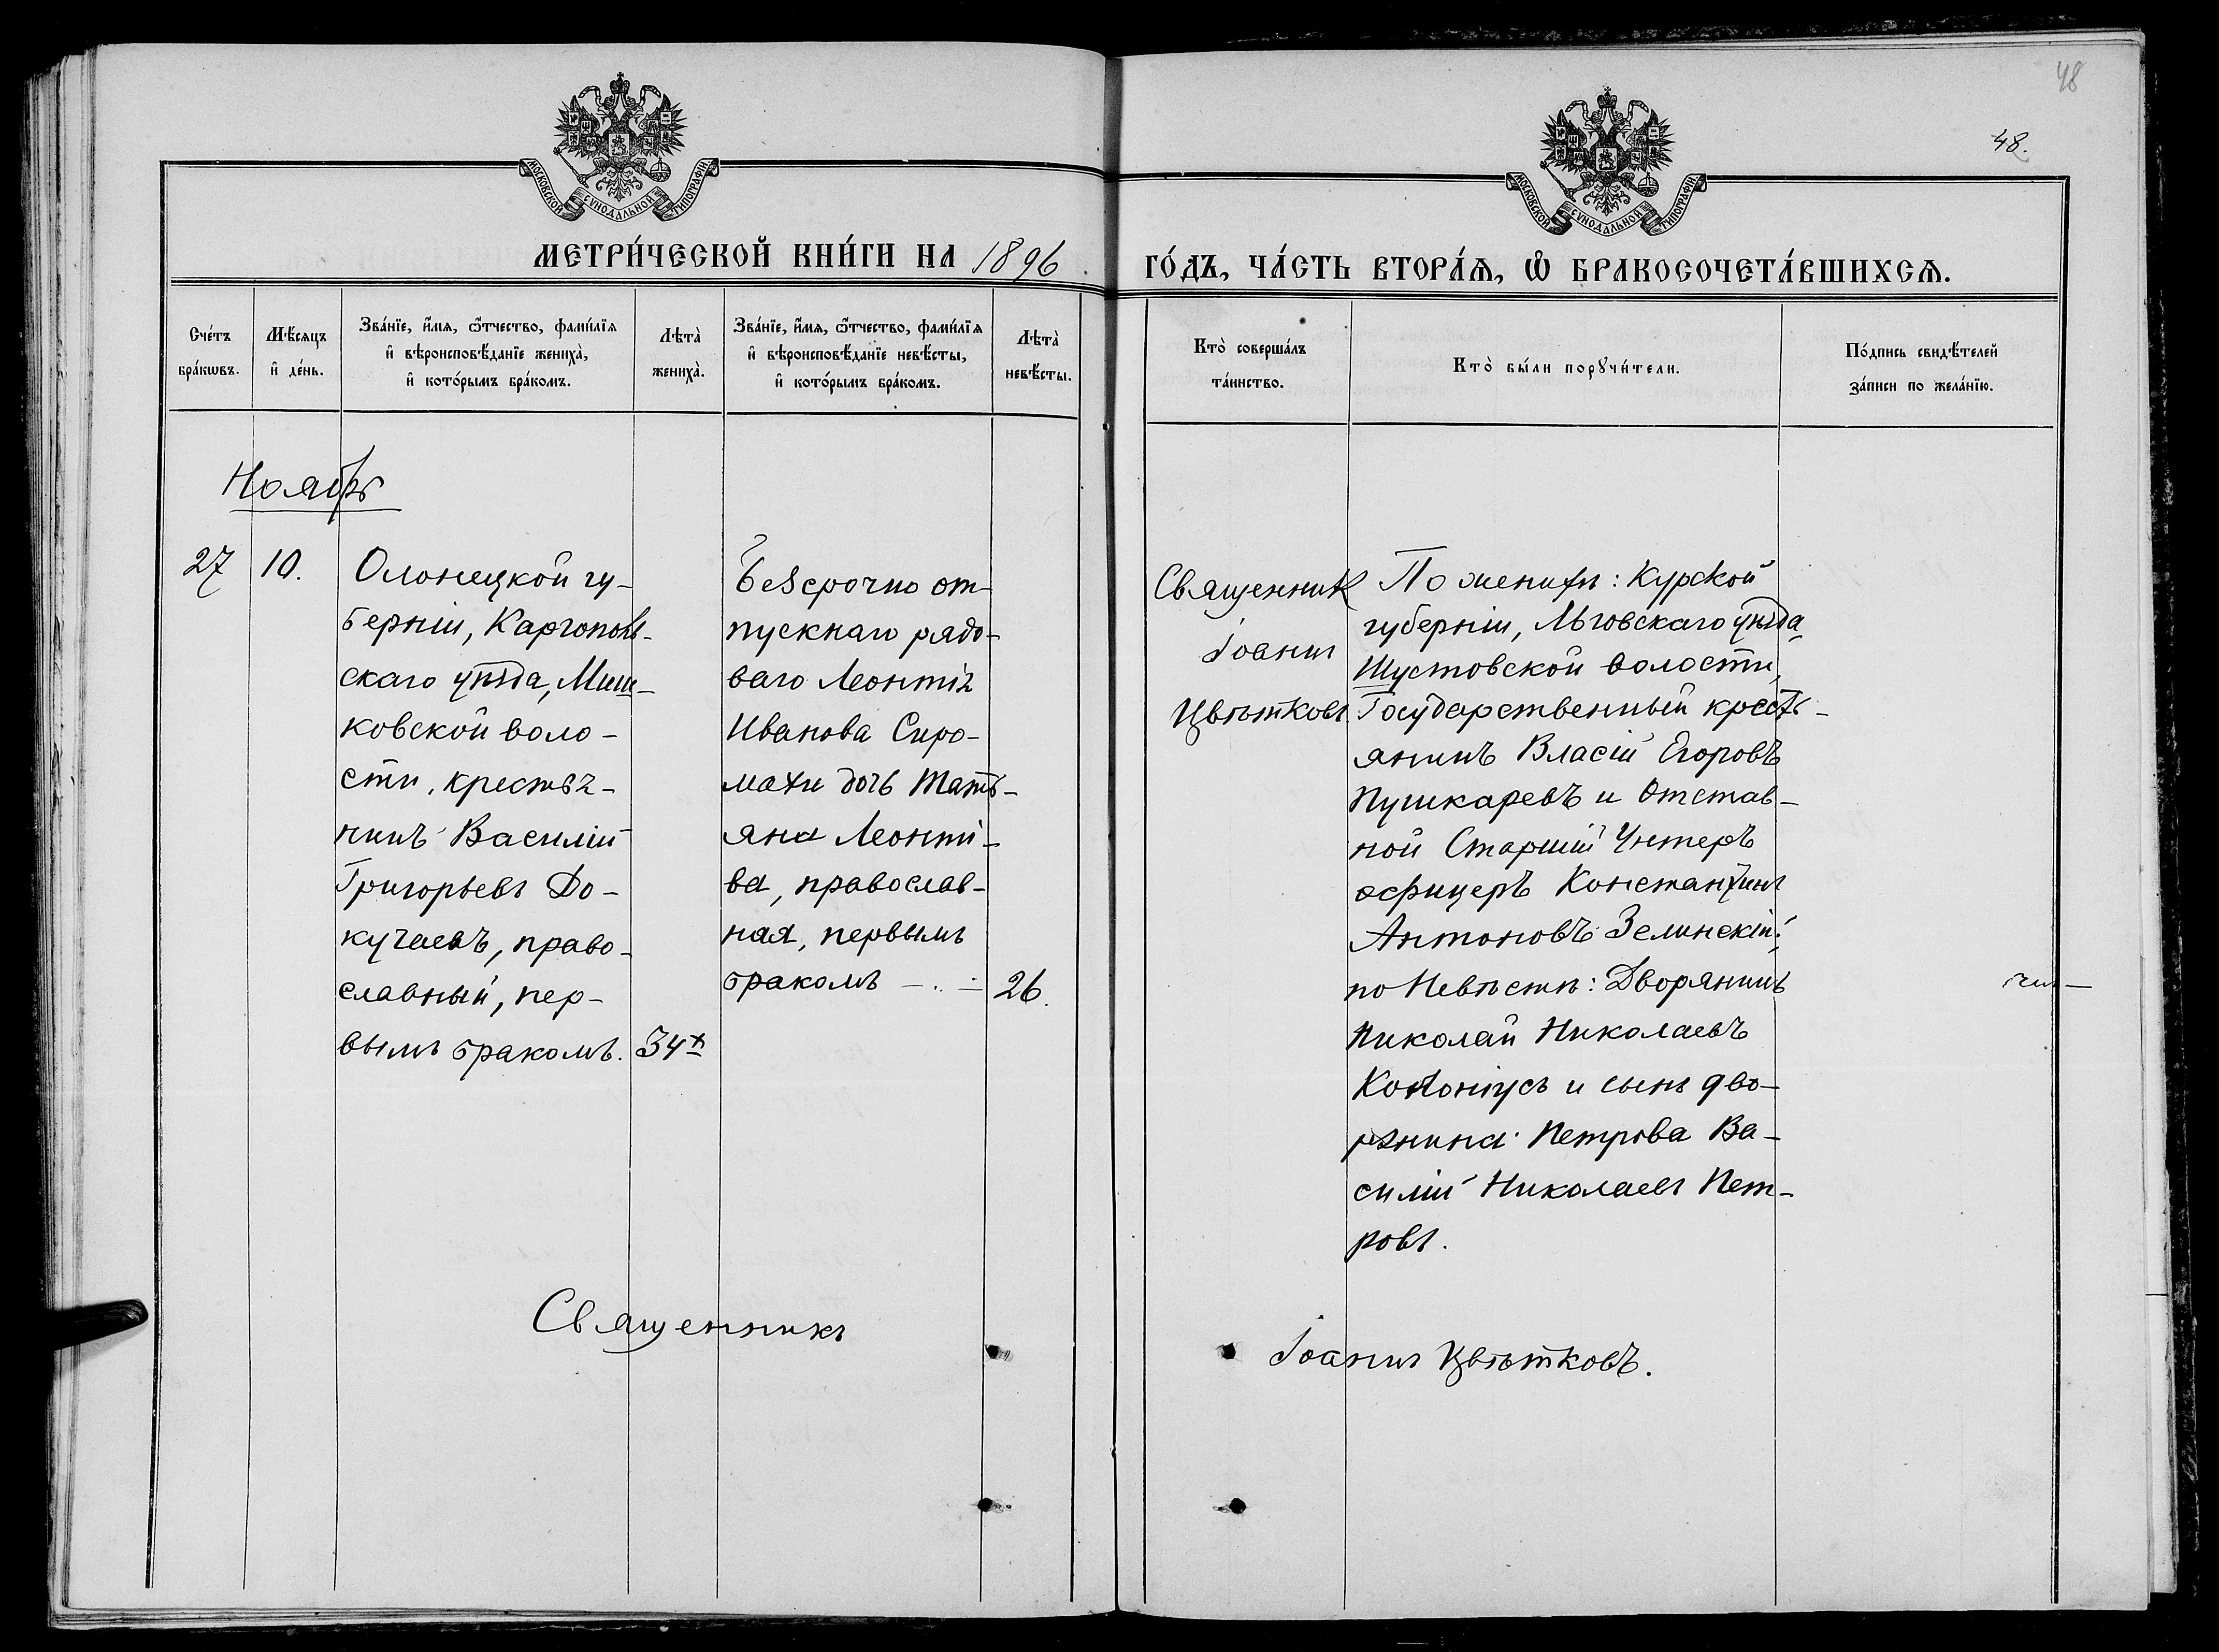 48
48.
МОСКОВСКОЙ СѴНОДАЛЬНОЙ ТИПОГРАФІИ
МОСКОВСКОЙ СѴНОДАЛЬНОЙ ТИПОГРАФІИ
МЕТРИ́ЧЕСКОЙ КНИ́ГИ НА 1896
ГО́ДЪ, ЧА́СТЬ ВТОРА́Я, Ѡ БРАКОСОЧЕТА́ВШИХСѦ.
Сче́тъ
бра́кѡвъ.
Мѣ́сяцъ
и҆ де́нь.
Зва́нїе, и҆́мя, ѻ҆́тчество, фами́лїя
и҆ вѣроисповѣ́данїе жениха̀,
и҆ кото́рымъ бра́комъ.
Лѣта̀
жениха̀.
Зва́нїе, и҆́мя, ѻ҆́тчество, фами́лїя
и҆ вѣроисповѣ́данїе невѣ́сты,
и҆ кото́рымъ бра́комъ.
Лѣта̀
невѣ́сты.
Кто̀ соверша́лъ
та́инство.
Кто̀ бы́ли порꙋчи́тели.
По́дпись свидѣ́телей
за́писи по жела́нїю.
Ноябрь
27
10.
Олонецкой гу-
берніи, Каргополь-
скаго уѣзда, Миш-
ковской воло-
сти, крестья-
нинъ Василій
Григорьевъ До-
кучаевъ, право-
славный, пер-
вымъ бракомъ.
34
Безсрочно от-
пускнаго рядо-
ваго Леонтія
Иванова Сиро-
махи дочь Тать-
яна Леонті-
ва, православ-
ная, первымъ
бракомъ
26.
Священник
Іоаннъ
Цвѣтковъ.
По женихѣ: Курской
губерніи, Льговскаго уѣзда,
Шустовской волости,
Государственный кресть-
янинъ Власій Егоровъ
Пушкаревъ и Отстав-
ной Старшій Унтеръ
офицеръ Константинъ
Антоновъ Зелинскій;
по Невѣстѣ: Дворянинъ
Николай Николаевъ
и сынъ дво-
рянина Петрова Ва-
силій Николаевъ Пет-
ровъ.
Священникъ
Іоаннъ Цвѣтковъ.